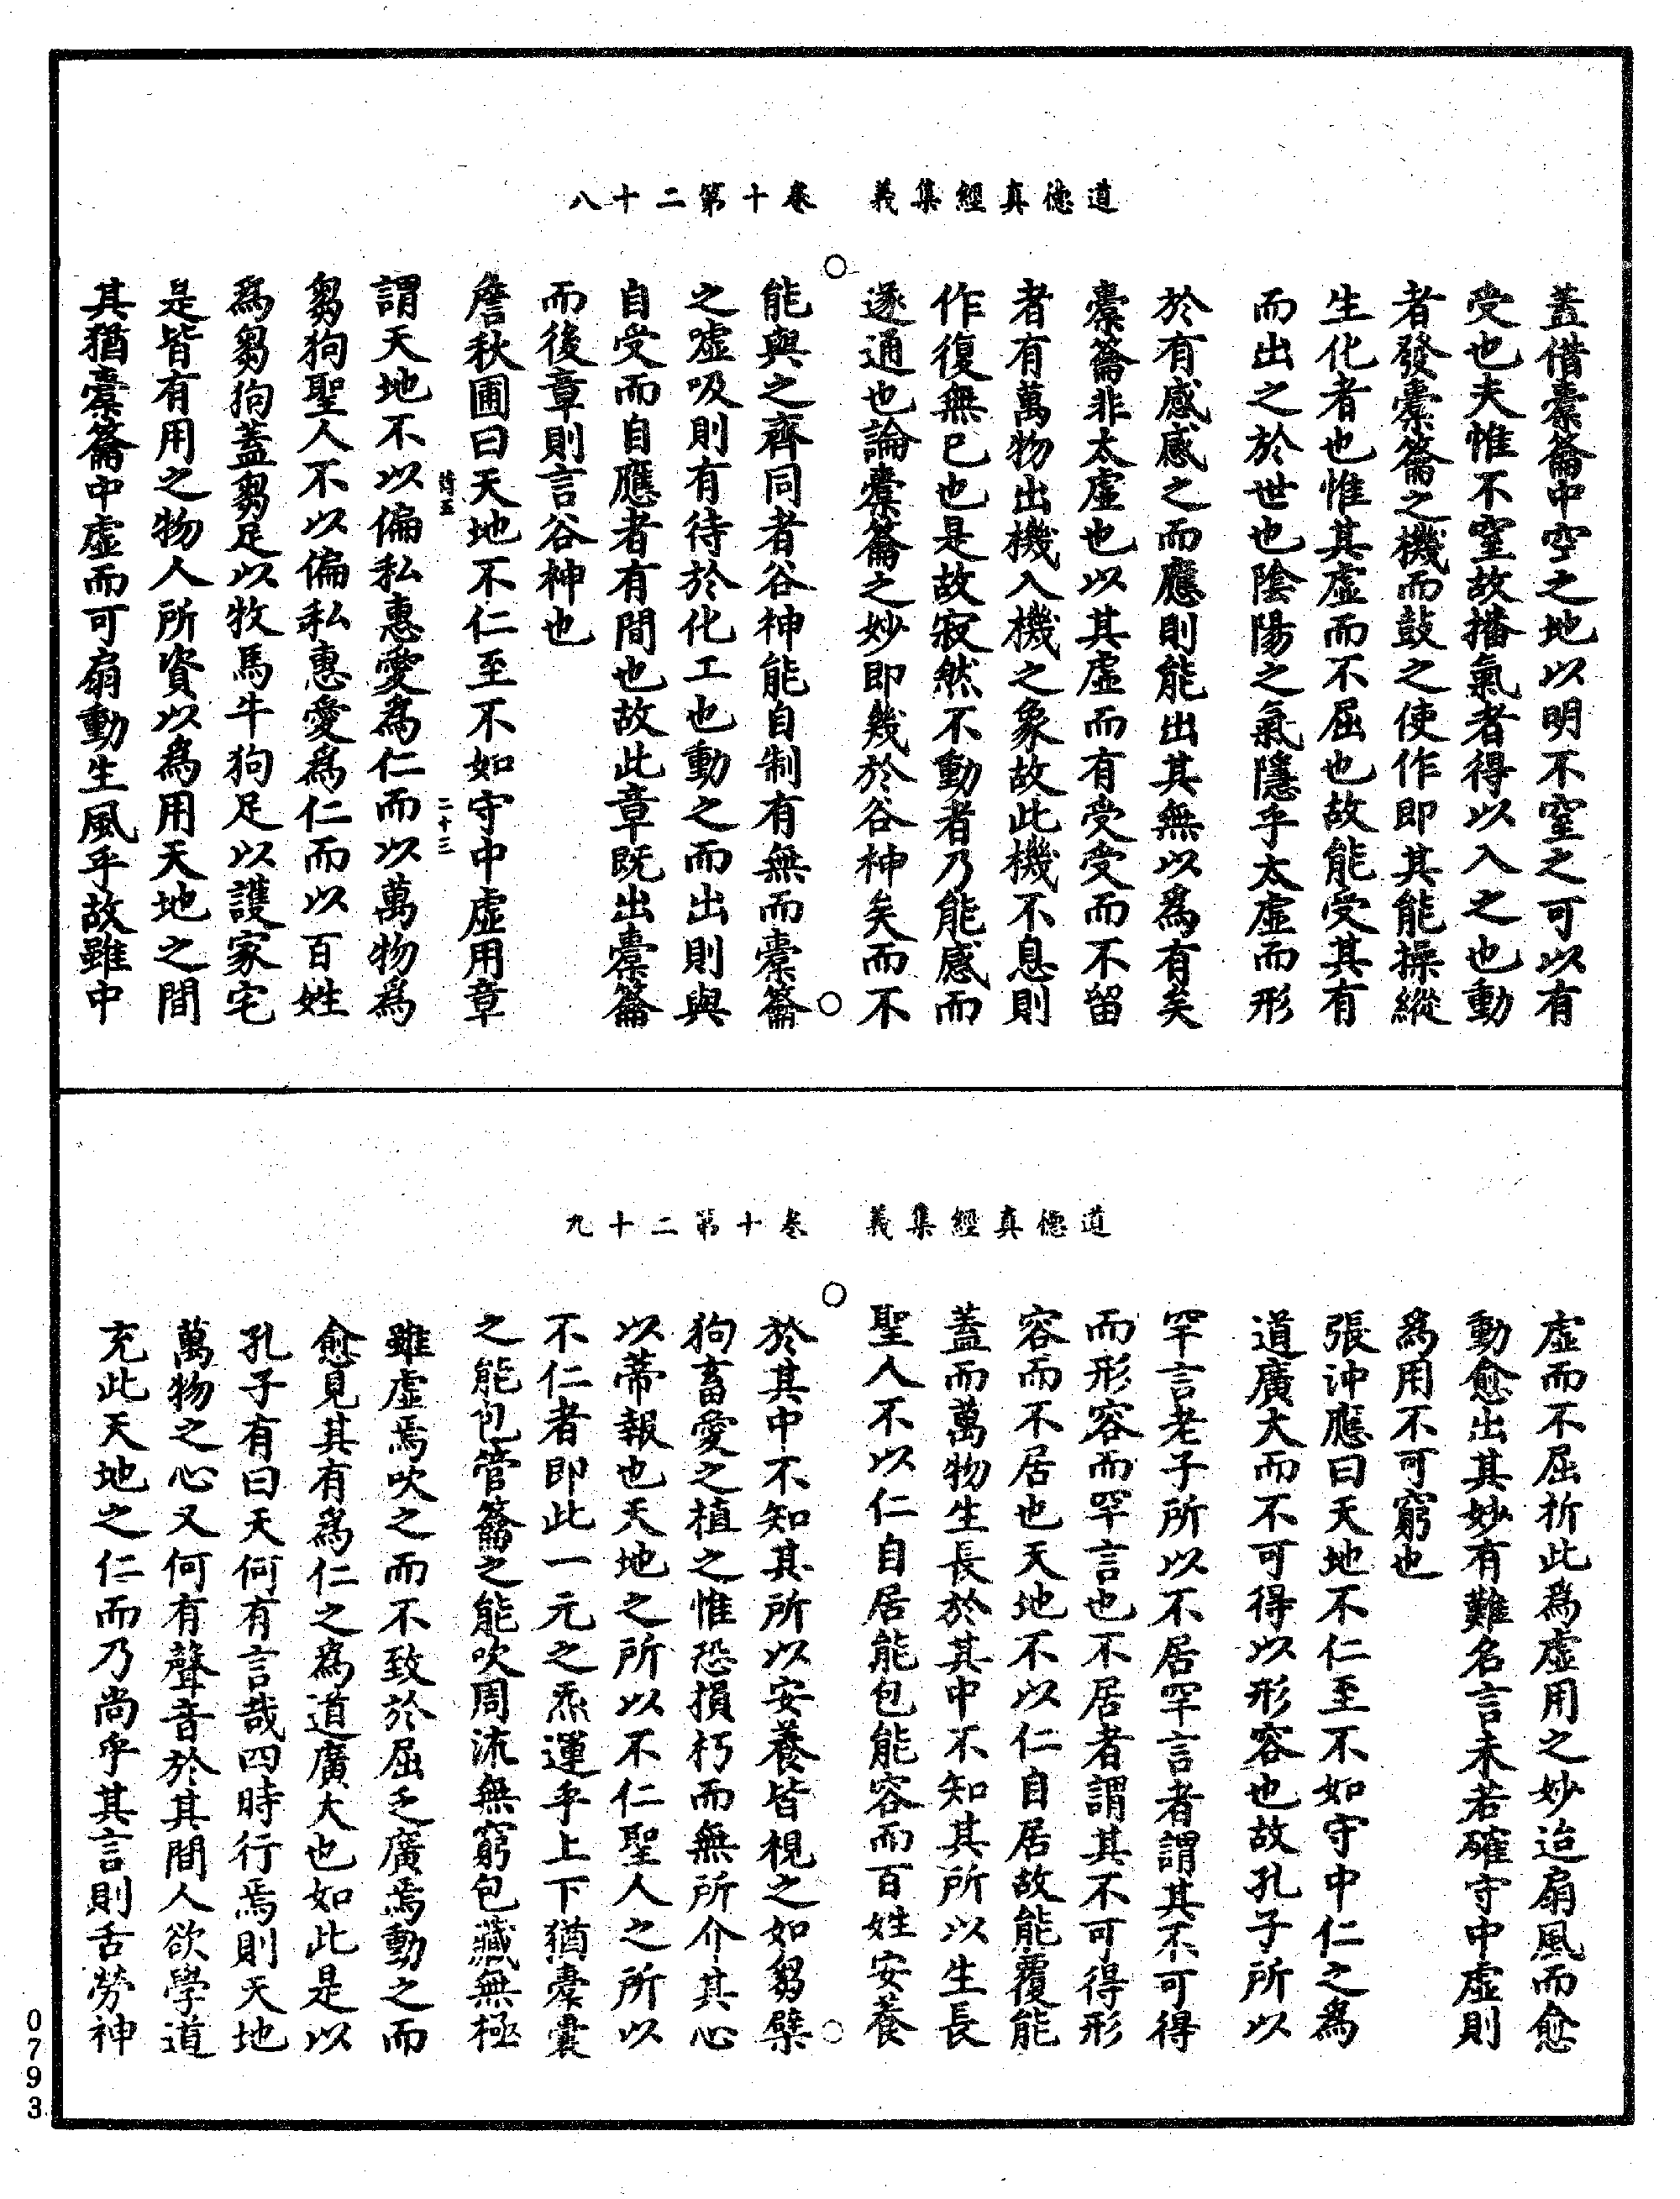 道德真經集義　卷十第二十八
蓋借橐籥中空之地以明不窒之可以有
受也夫惟不窒故播氣者得以入之也動
者發橐籥之機而鼓之使作即其能操縱
生化者也惟其虛而不屈也故能受其有
而出之於世也陰陽之氣隱乎太虛而形
於有感感之而應則能出其無以爲有矣
橐籥非太虛也以其虛而有受受而不留
者有萬物出機入機之象故此機不息則
作復無已也是故寂然不動者乃能感而
遂通也論橐籥之妙即幾於谷神矣而不
能與之齊同者谷神能自制有無而橐籥
之噓吸則有待於化工也動之而出則與
自受而自應者有間也故此章既出橐籥
而後章則言谷神也
詹秋圃曰天地不仁至不如守中虛用章
二十三
謂天地不以偏私惠愛爲仁而以萬物爲
芻狗聖人不以偏私惠愛爲仁而以百姓
爲芻狗蓋芻足以牧馬牛狗足以護家宅
是皆有用之物人所資以爲用天地之間
其猶橐籥中虛而可扇動生風乎故雖中
道德真經集義　卷十第二十九
虛而不屈折此爲虛用之妙迨扇風而愈
動愈出其妙有難名言未若確守中虛則
爲用不可窮也
張沖應曰天地不仁至不如守中仁之爲
道廣大而不可得以形容也故孔子所以
罕言老子所以不居罕言者謂其不可得
而形容而罕言也不居者謂其不可得形
容而不居也天地不以仁自居故能覆能
蓋而萬物生長於其中不知其所以生長
聖人不以仁自居能包能容而百姓安養
於其中不知其所以安養皆視之如芻檗
狗畜愛之植之惟恐損朽而無所介其心
以蒂報也天地之所以不仁聖人之所以
不仁者即此一元之炁運乎上下猶橐囊
之能包管籥之能吹周流無窮包藏無極
雖虛焉吹之而不致於屈乏廣焉動之而
愈見其有爲仁之爲道廣大也如此是以
孔子有曰天何有言哉四時行焉則天地
萬物之心又何有聲音於其間人欲學道
充此天地之仁而乃尚乎其言則舌勞神
0793